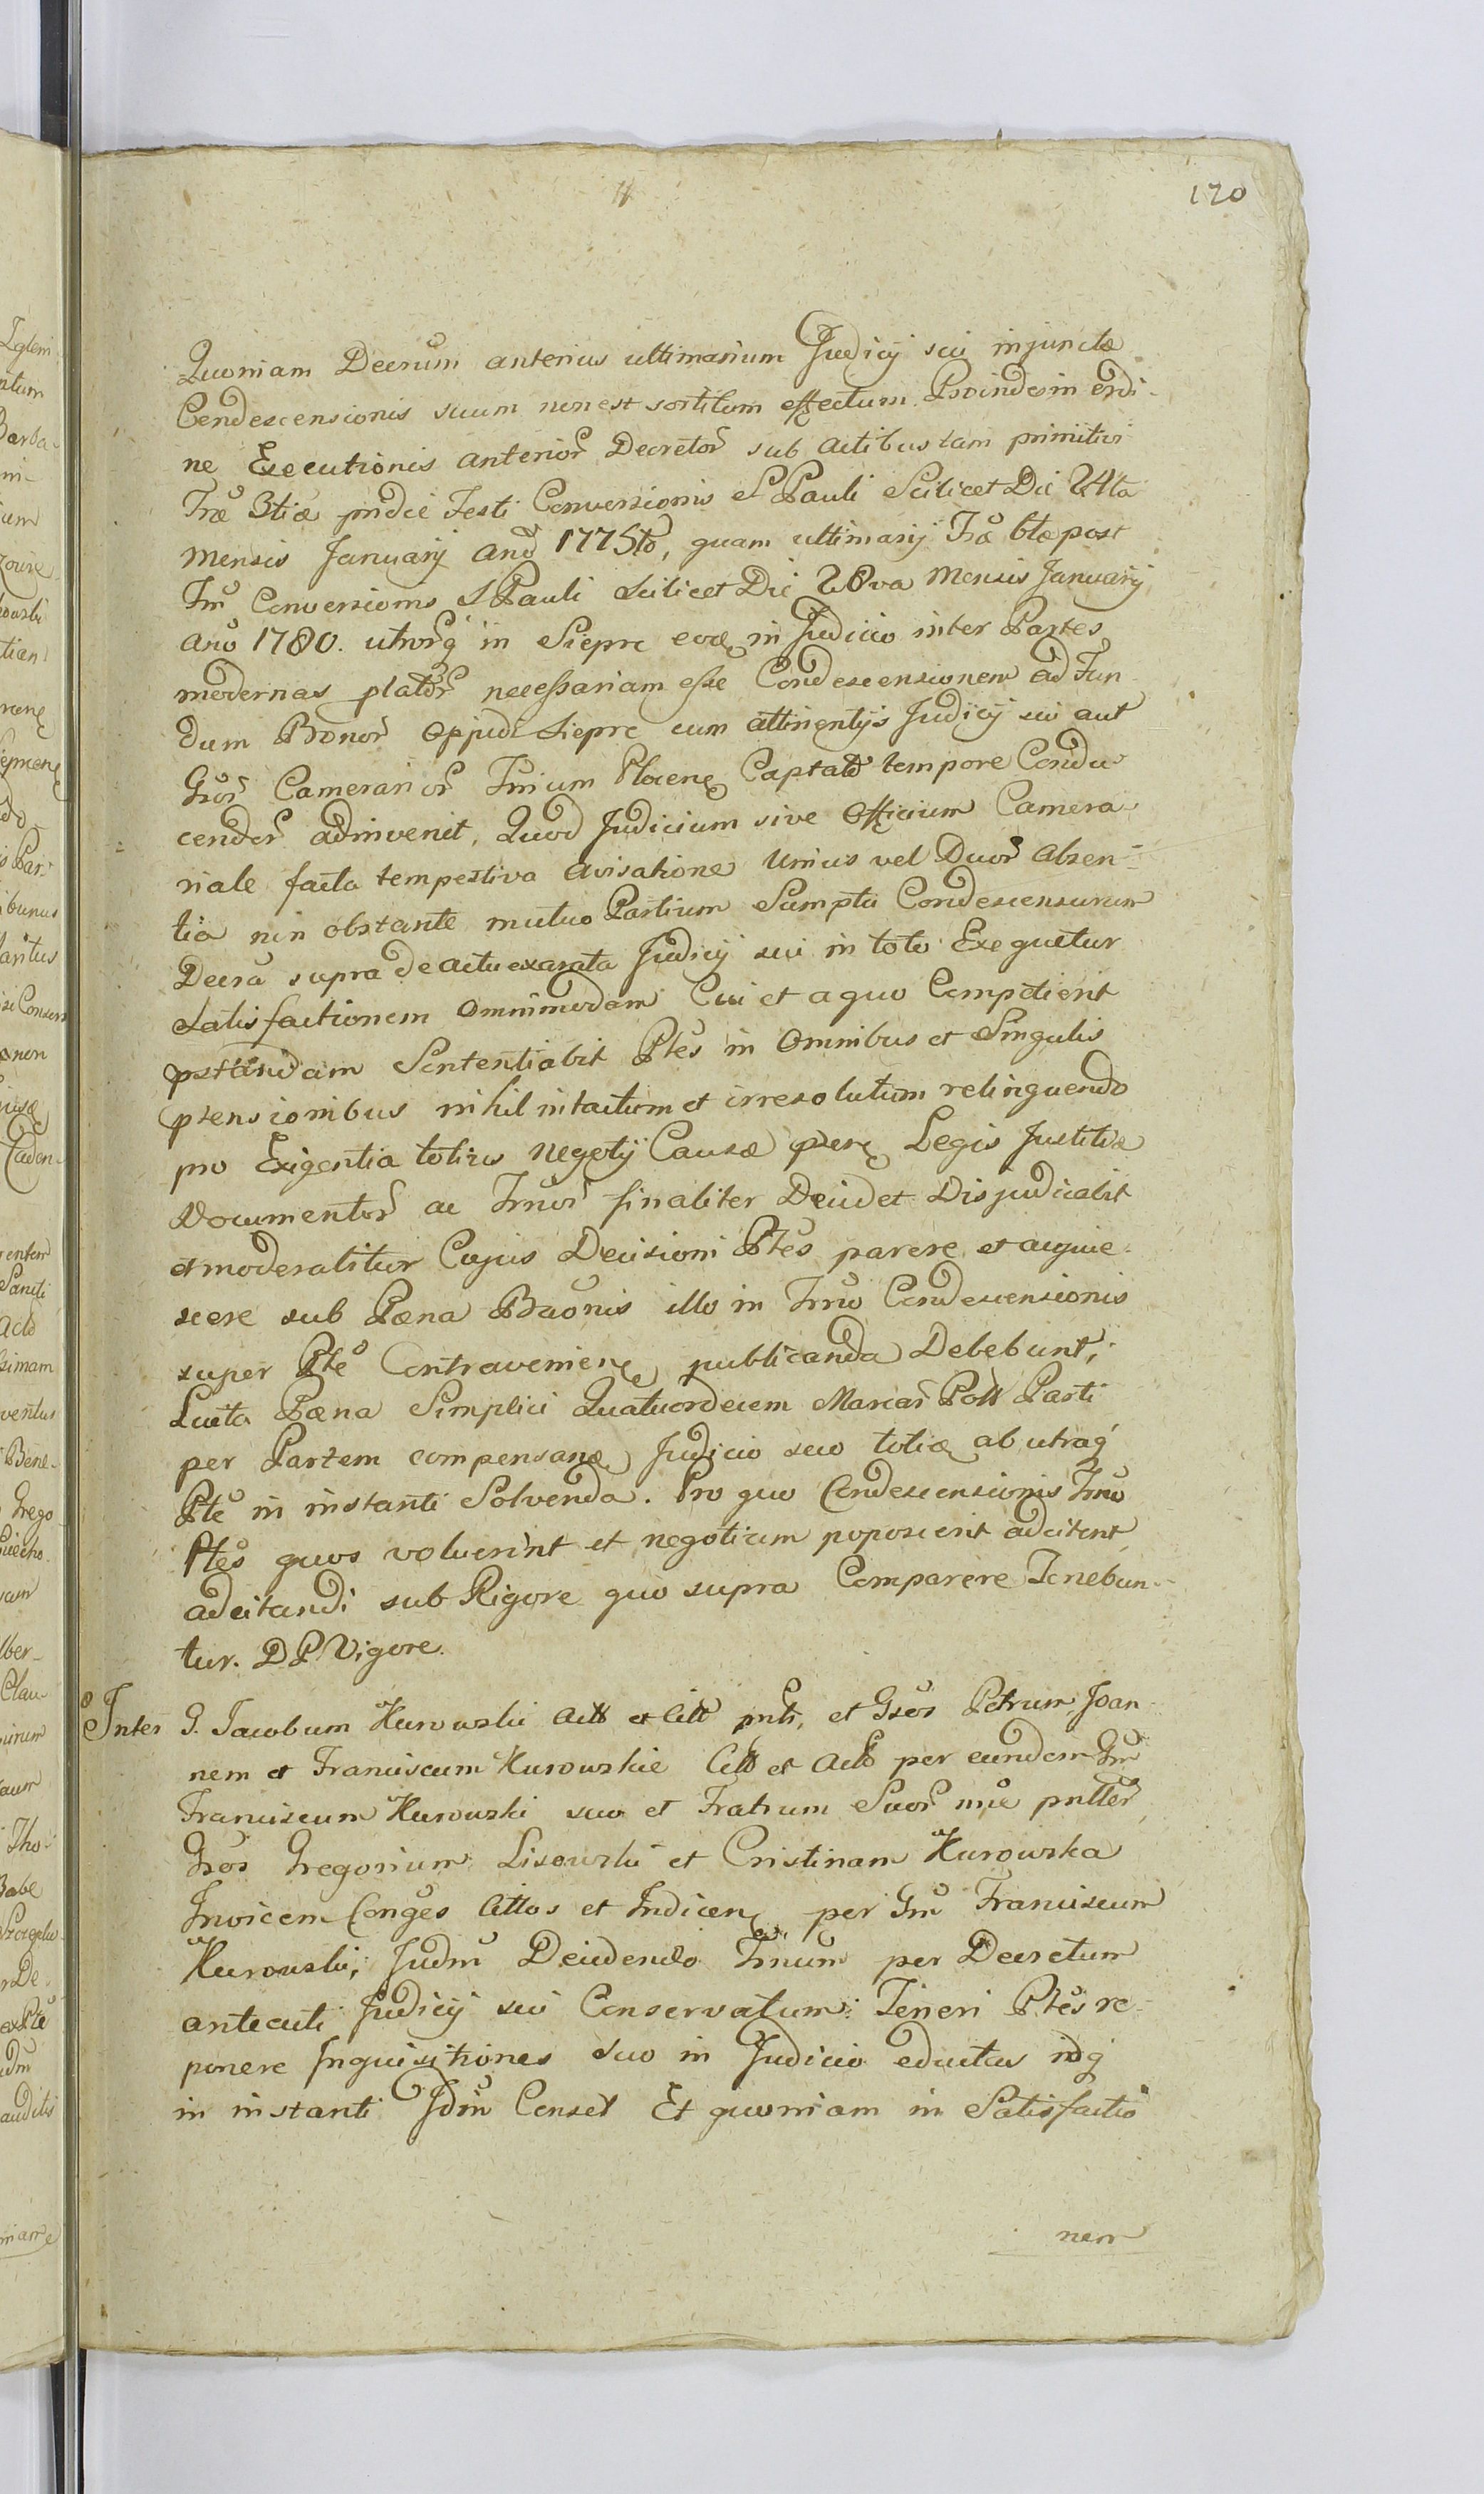 170
Quoniam Decrum anterius ultimarium Judicij sui injunctæ
Condescensionis suum non est sortitum effectum. Proinde in ordi-
ne Executionis anterior Decretor sub actibus tam primitivi
Fræ 3tiæ pridie Festi Conversionis S Pauli Scilicet Die 24ta
Mensis Januarij Anō 1775tō, quam ultimarij Fræ 6tæ post
Fm Conversionis S Pauli Scilicet Die 28va Mensis Januarij
Anō 1780. utrorq in Sieprc in Judicio inter Partes
modernas plator necessariam esse Condescensionem ad Fun-
dum Bonor Oppidi Sieprc cum attinentijs Judicij sui aut
Gror Camerarior Trium Plocen Captato tempore Condu
cendor adinvenit, Quod Judicium sive Officium Camera-
riale facta tempestiva avisatione Unius vel Duor Absen-
tia non obstante mutuo Partium Sumptu Condescensurum
Decra supra de actu exarata Judicij sui in toto Exequetur
Satisfactionem Omnimodam Cui et a quo Competierit
pstandam Sententiabit Ptes in Omnibus et Singulis
ptensionibus nihil intactum et irresolutum relinquendo
pro Exigentia totius Negotij Causæ Legis Justitiæ
Documentor ac Tmor finaliter Decidet Disjudicabit
et moderabitur Cujus Decisioni Ptes parere et acquie-
scere sub Pæna Baōnis illo in Tmo Condescensionis
super Pte Contravenien publicanda Debebunt,
Lucta Pæna Simplici Quatuordecem Marcar Poll Parti
per Partem compensan Judicio suo toties ab utraq
Pte in instanti Solvenda. Pro quo Condescensionis Tmo
Ptes quos voluerint et negotium poposcerit adcitent
adcitandi sub Rigore quo supra Comparere Tenebun-
tur. D P Vigore.
Inter G. Jacobum Kurowski Actt et Citt pnti, et Gros Petrum, Joan-
nem et Franciscum Kurowskie Citt et Act per eundem Gm
Franciscum Kurowski suo et Fratrum Suor nne pntter
Gros Gregorium Lisowski et Cristinam Kurowska
Invicem Conges Cittos et Indicen per Gm Franciscum
Kurowski, Judm Decidendo Tmum per Decretum
antecuti Judicij sui Conservatum: Teneri Ptes re-
ponere Inquisitiones suo in Judicio eductas idq
in instanti Jdm Censet Et quoniam in Satisfactio
nem